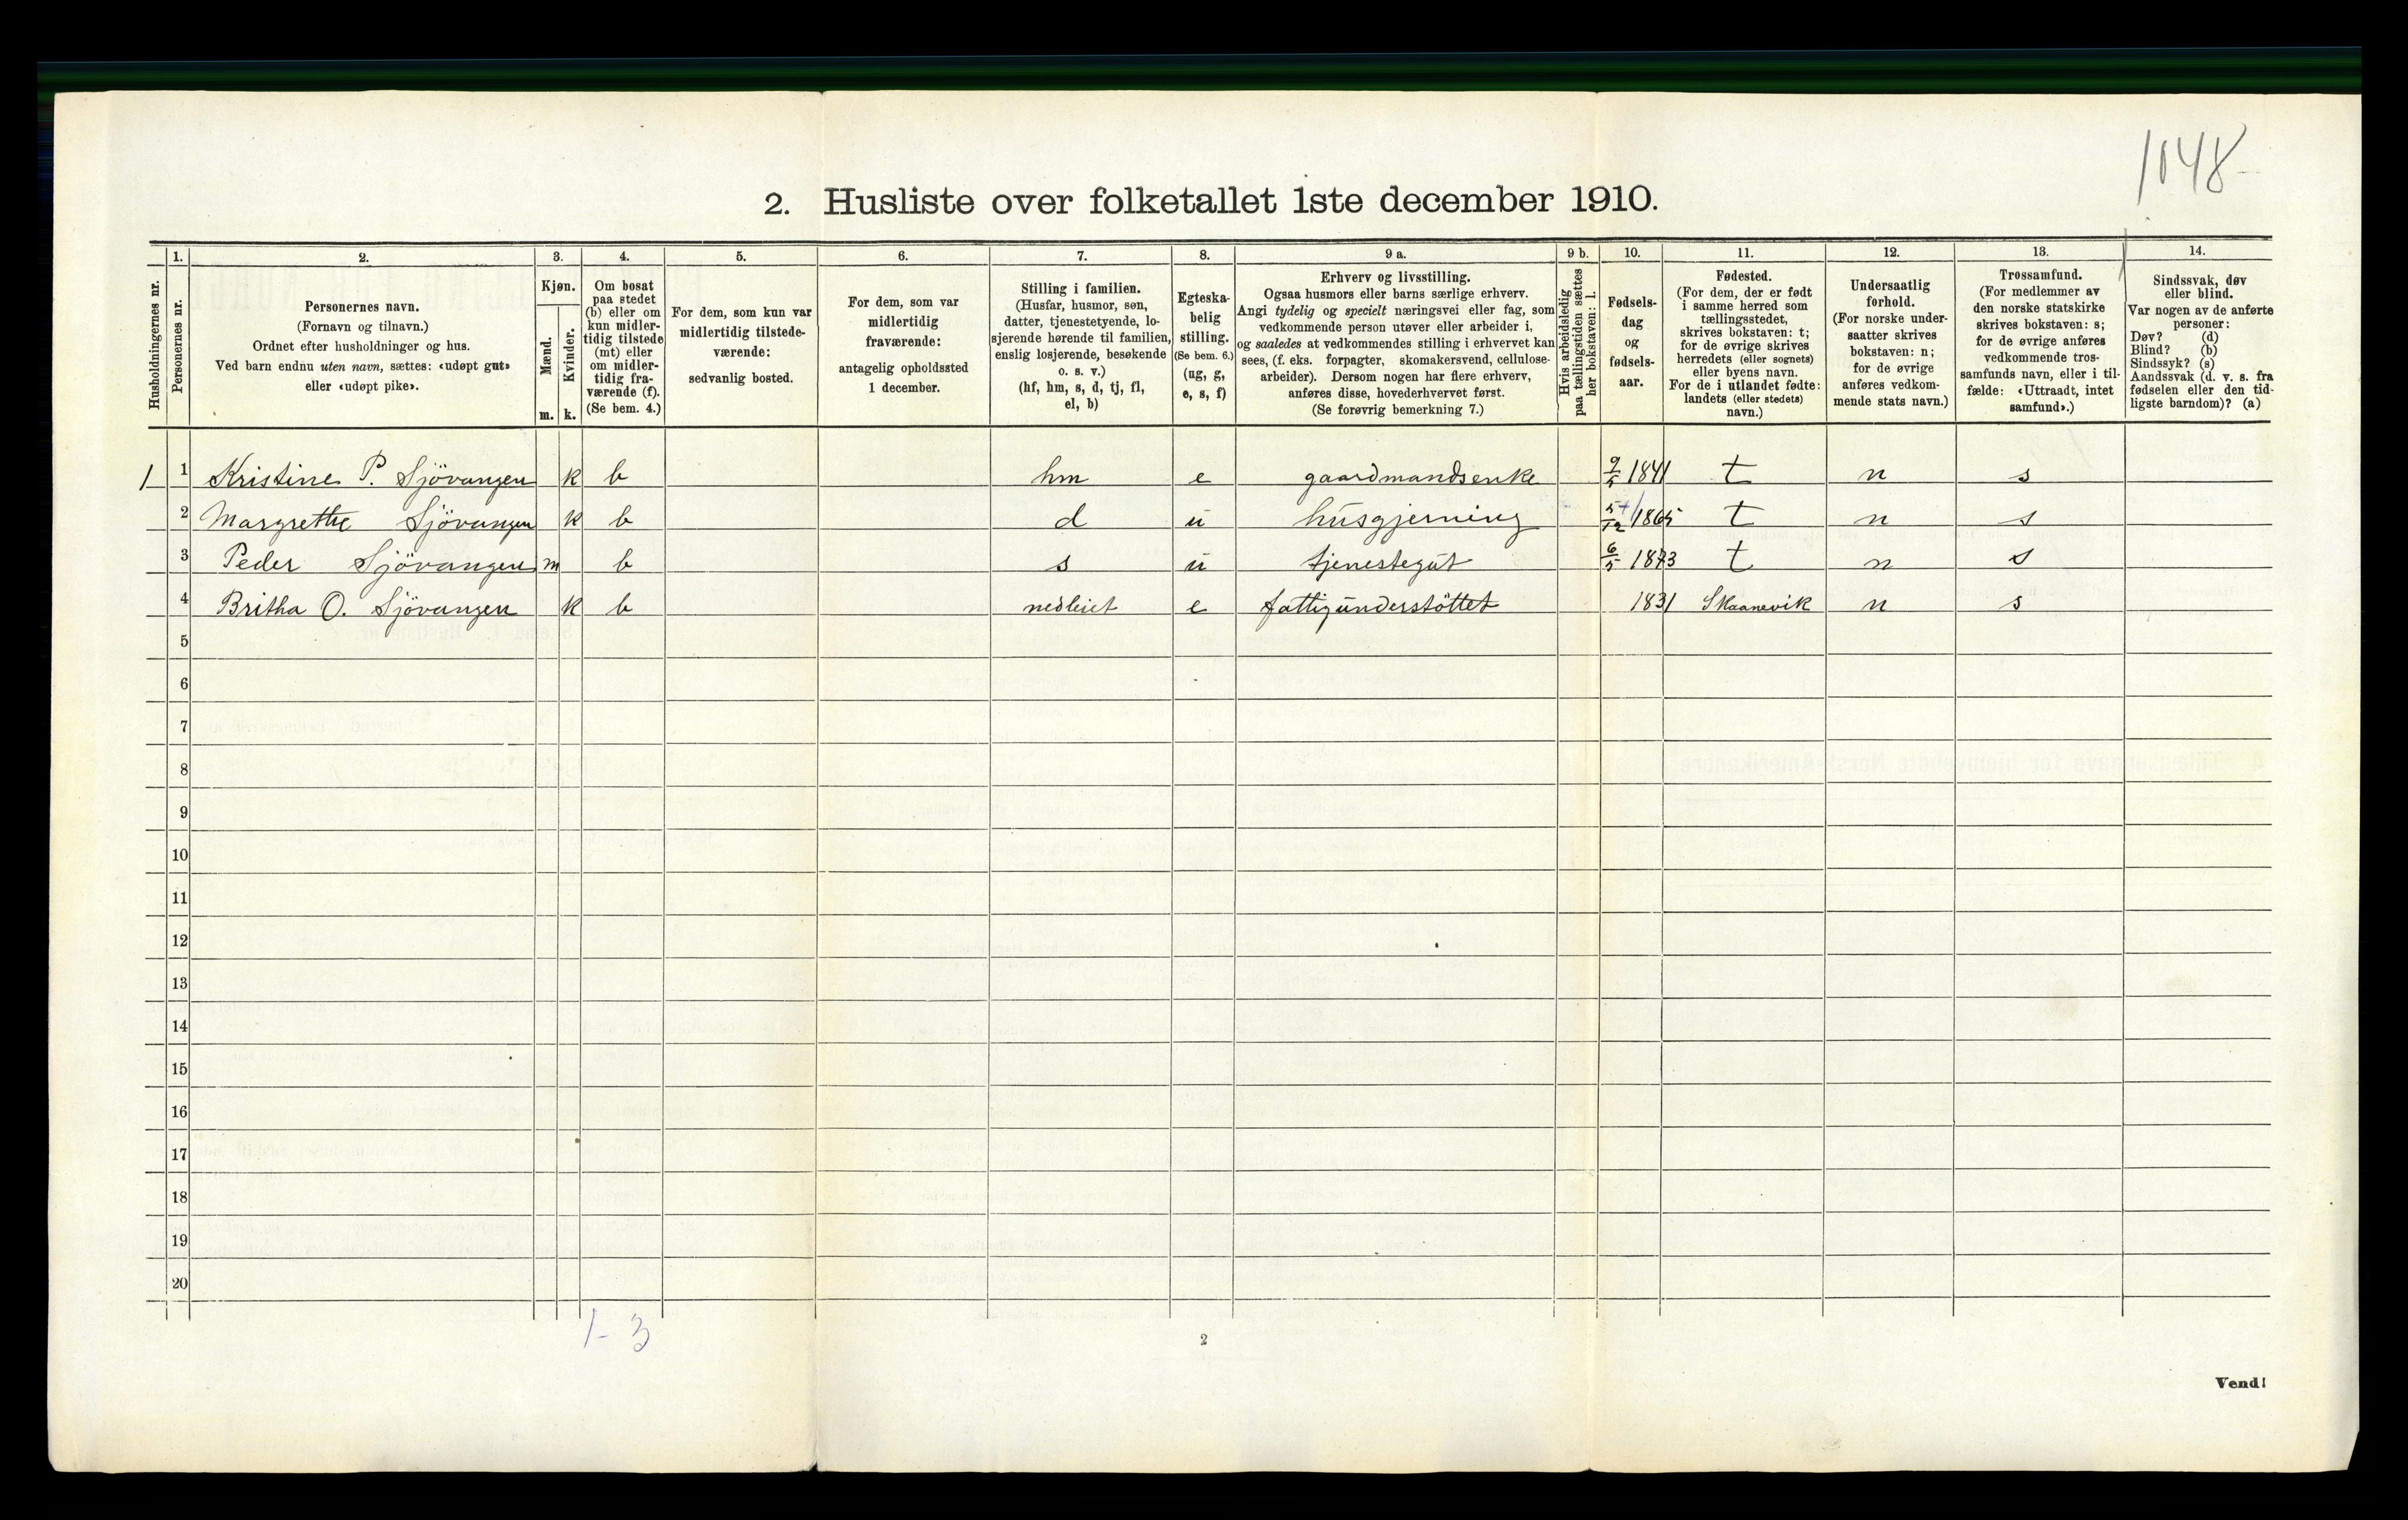 1048
2. Husliste over folketallet 1ste december 1910.
1. 2. 3. 4. 5. 6. 7. 8. 9 a. 9 b. 10. 11. 12. 13. 14.
Husholdningernes nr.
Personernes nr.
Personernes navn.
(Fornavn og tilnavn.)
Ordnet efter husholdninger og hus.
Ved barn endnu uten navn, sættes: «udøpt gut»
eller «udøpt pike».
Kjøn.
Mænd.
Kvinder.
m. k.
Om bosat
paa stedet
(b) eller om
kun midler-
tidig tilstede
(mt) eller
om midler-
tidig fra-
værende (f).
(Se bem. 4.)
For dem, som kun var
midlertidig tilstede-
værende:
sedvanlig bosted.
For dem, som var
midlertidig
fraværende:
antagelig opholdssted
1 december.
Stilling i familien.
(Husfar, husmor, søn,
datter, tjenestetyende, lo-
sjerende hørende til familien,
enslig losjerende, besøkende
o. s. v.)
(hf, hm, s, d, tj, fl,
el, b)
Egteska-
belig
stilling.
(Se bem. 6.)
(ug, g,
e, s, f)
Erhverv og livsstilling.
Ogsaa husmors eller barns særlige erhverv.
Angi tydelig og specielt næringsvei eller fag, som
vedkommende person utøver eller arbeider i,
og saaledes at vedkommendes stilling i erhvervet kan
sees, (f. eks. forpagter, skomakersvend, cellulose-
arbeider). Dersom nogen har flere erhverv,
anføres disse, hovederhvervet først.
(Se forøvrig bemerkning 7.)
Hvis arbeidsledig
paa tællingstiden sættes
her bokstaven: l.
Fødsels-
dag
og
fødsels-
aar.
Fødested.
(For dem, der er født
i samme herred som
tællingsstedet,
skrives bokstaven: t;
for de øvrige skrives
herredets (eller sognets)
eller byens navn.
For de i utlandet fødte:
landets (eller stedets)
navn.)
Undersaatlig
forhold.
(For norske under-
saatter skrives
bokstaven: n;
for de øvrige
anføres vedkom-
mende stats navn.)
Trossamfund.
(For medlemmer av
den norske statskirke
skrives bokstaven: s;
for de øvrige anføres
vedkommende tros-
samfunds navn, eller i til-
fælde: «Uttraadt, intet
samfund».)
Sindssvak, døv
eller blind.
Var nogen av de anførte
personer:
Døv? (d)
Blind? (b)
Sindssyk? (s)
Aandssvak (d. v. s. fra
fødselen eller den tid-
ligste barndom)? (a)
1 1 Kristine P. Sjövangen k b hm e gaardmandsenke 9/5 1841 t n s
2 Margrethe Sjövangen k b d ü hüsgjerning 5/12 1865 t n s
3 Peder Sjövangen m b s ü tjenestegüt 6/5 1873 t n s
4 Britha O. Sjövangen k b nedleiet e fattigünderstöttet 1831 Skaanevik n s
5
6
7
8
9
10
11
12
13
14
15
16
17
18
19
20
1-3
2
Vend!